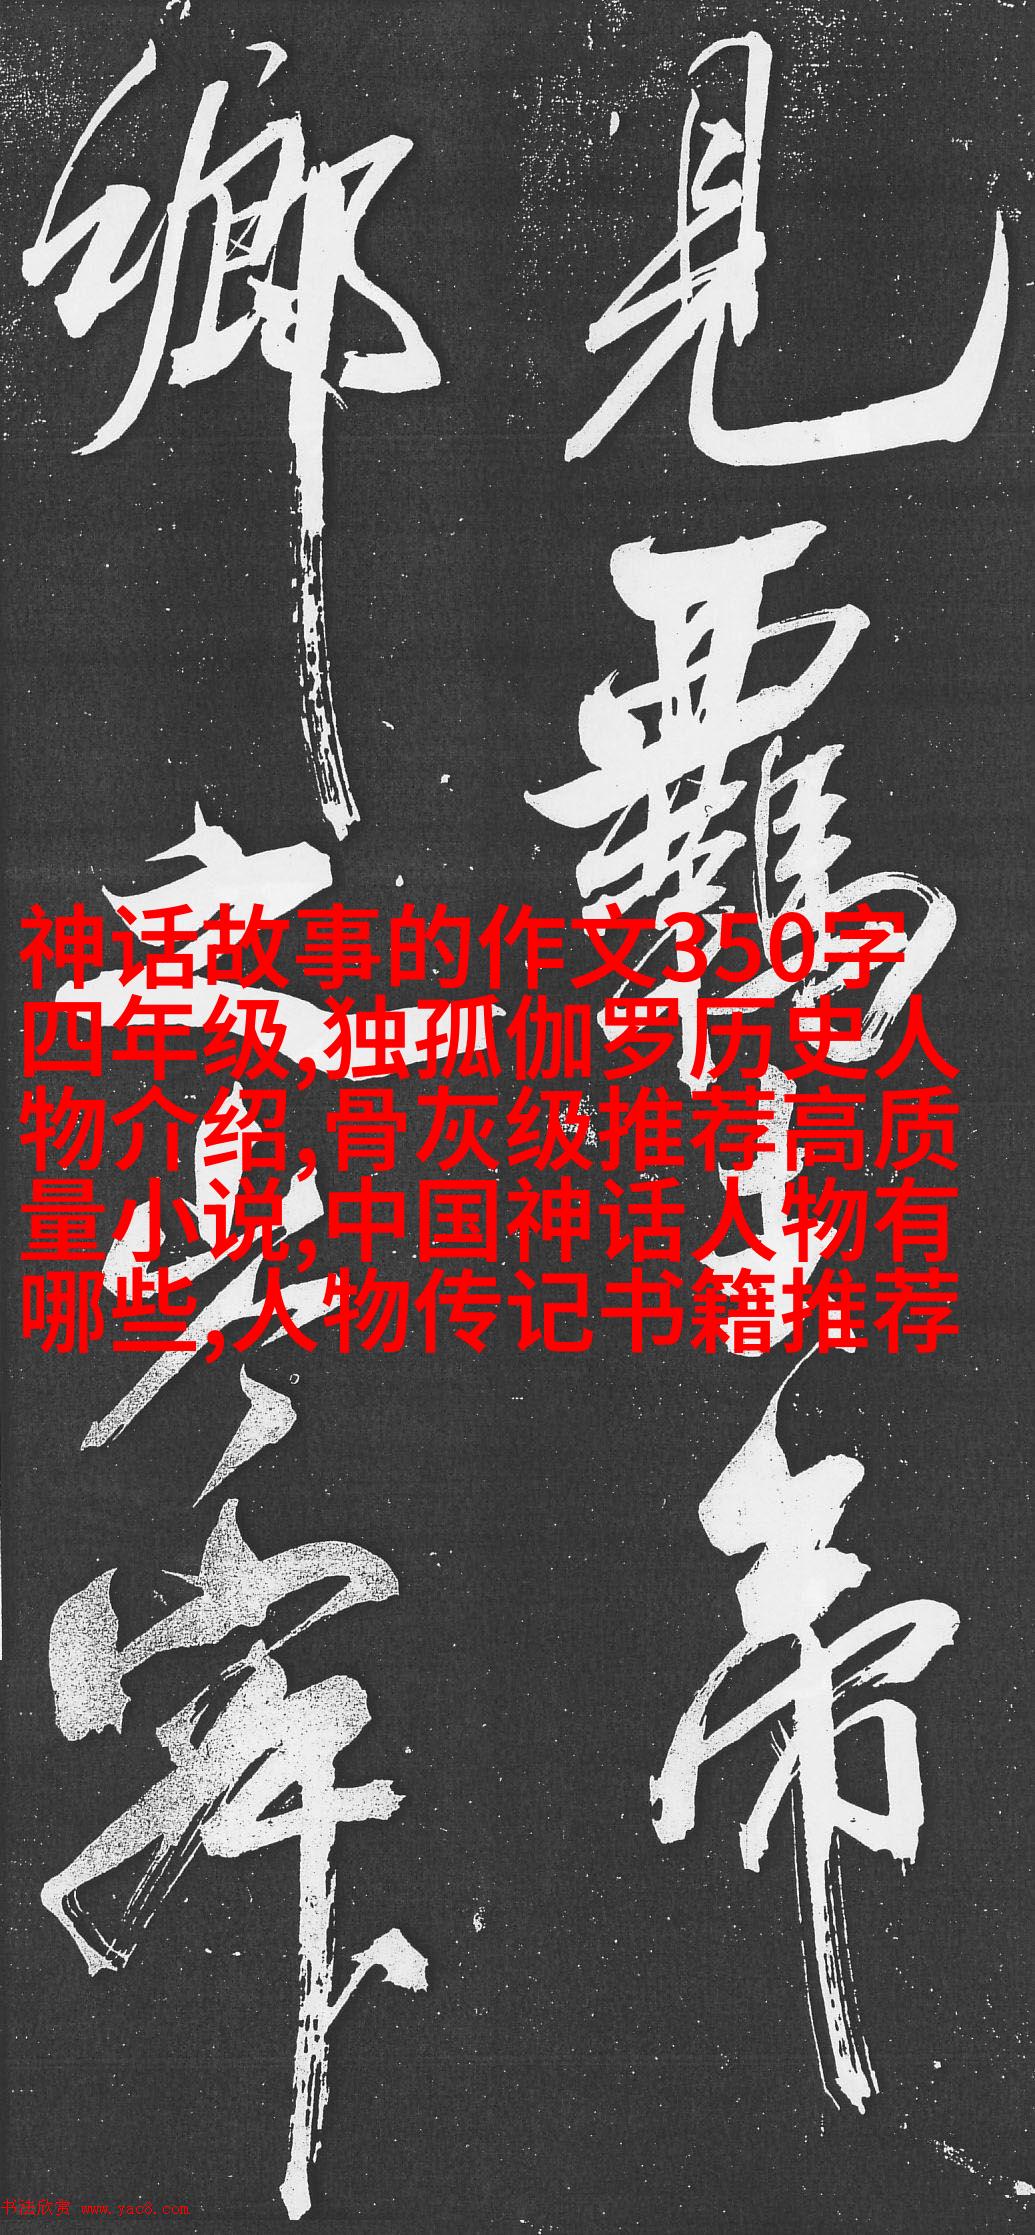 見羈帝
鄉之
神话故事的作文350字
四年级,独孤伽罗历史人
物介绍,骨灰级推荐高质
量小说,中国神话人物有
哪些,人物传记书籍推荐
书法欣赏 www.yac8.com